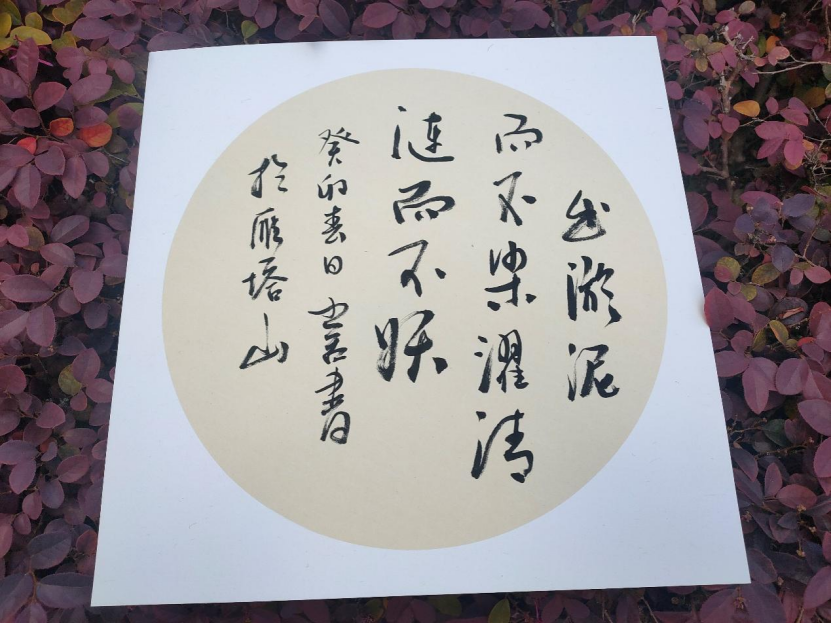 出淤泥
而不染濯清
涟而不妖
癸卯春日 书
於雁塔山